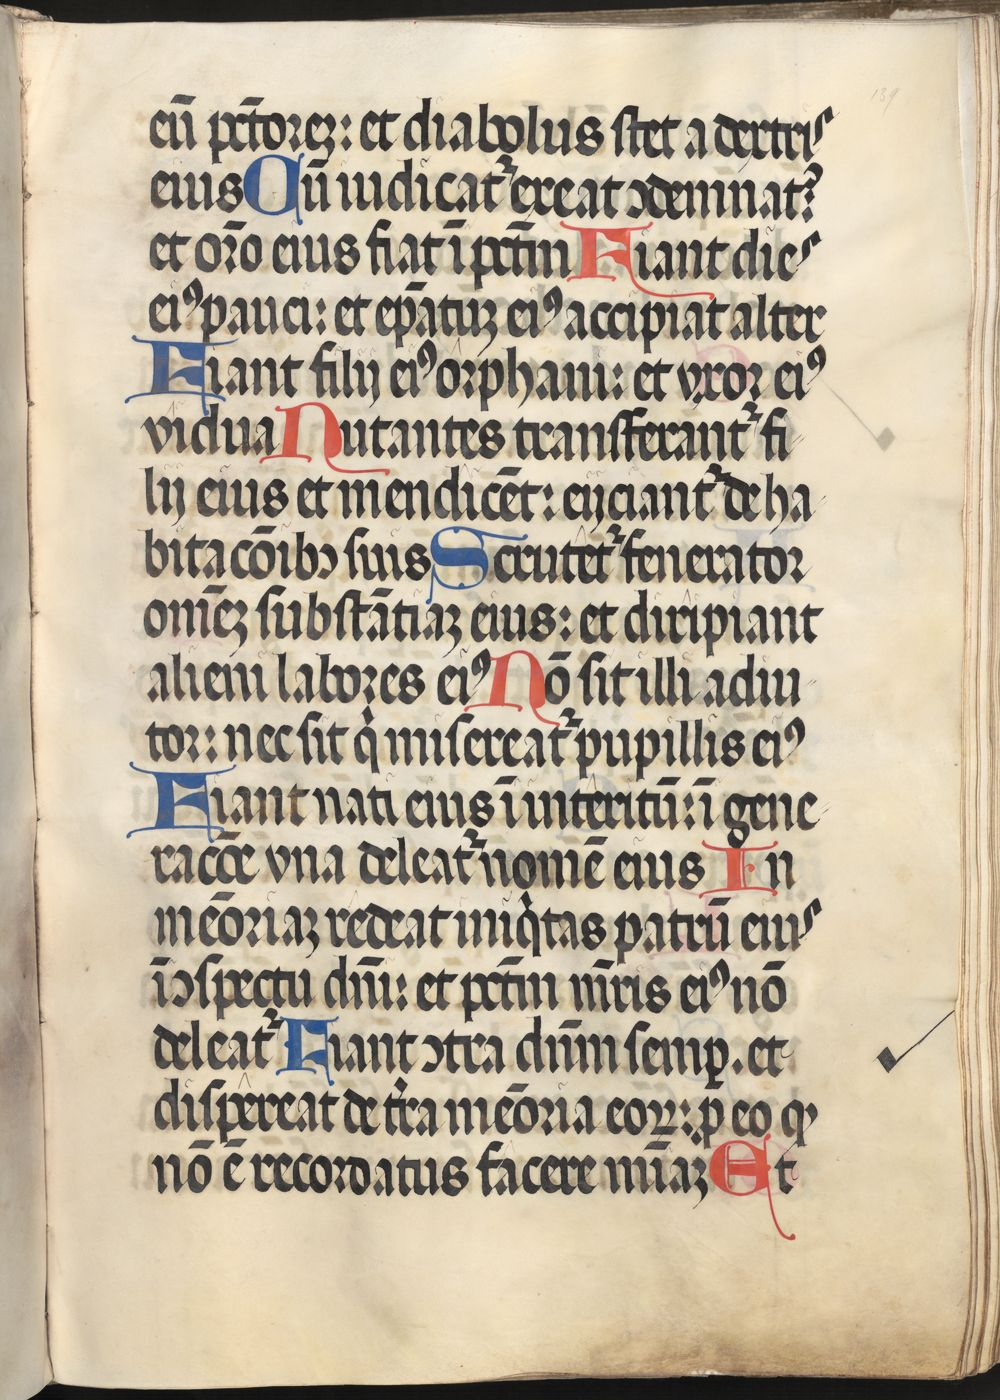 139
eū pctōreꝫ: et diabolus stet a dextris
eius Cū iudicatᷣ exeat ↄdemnatᷣ
et orō eius fiat ī pctm̄ Fiant dies
eiꝰ pauci: et ep̄atuꝫ eiꝰ accipiat alter
Fiant filij eiꝰ orphani: et vxor eiꝰ
vidua Nutantes transferantᷣ fi
lij eius et mendicēt: eijciantᷣ de ha
bitacōibꝫ suis Scrutetᷣ fenerator
om̄eꝫ substātiaꝫ eius: et diripiant
alieni labores eiꝰ Nō sit illi adiu
tor: nec sit qͥ misereatᷣ pupillis eiꝰ
Fiant nati eius ī interitū: ī gene
racōe vna deleatᷣ nomē eius In
mēoriaꝫ redeat iniqͥtas patrū eius
ī ↄspectu dn̄i: et pctm̄ mr̄is eiꝰ nō
deleatᷣ Fiant ↄtra dn̄m semꝑ. et
dispereat de tr̄a mēoria eoꝝ: ꝑ eo ꝙ
nō ē recordatus facere mīaꝫ Et